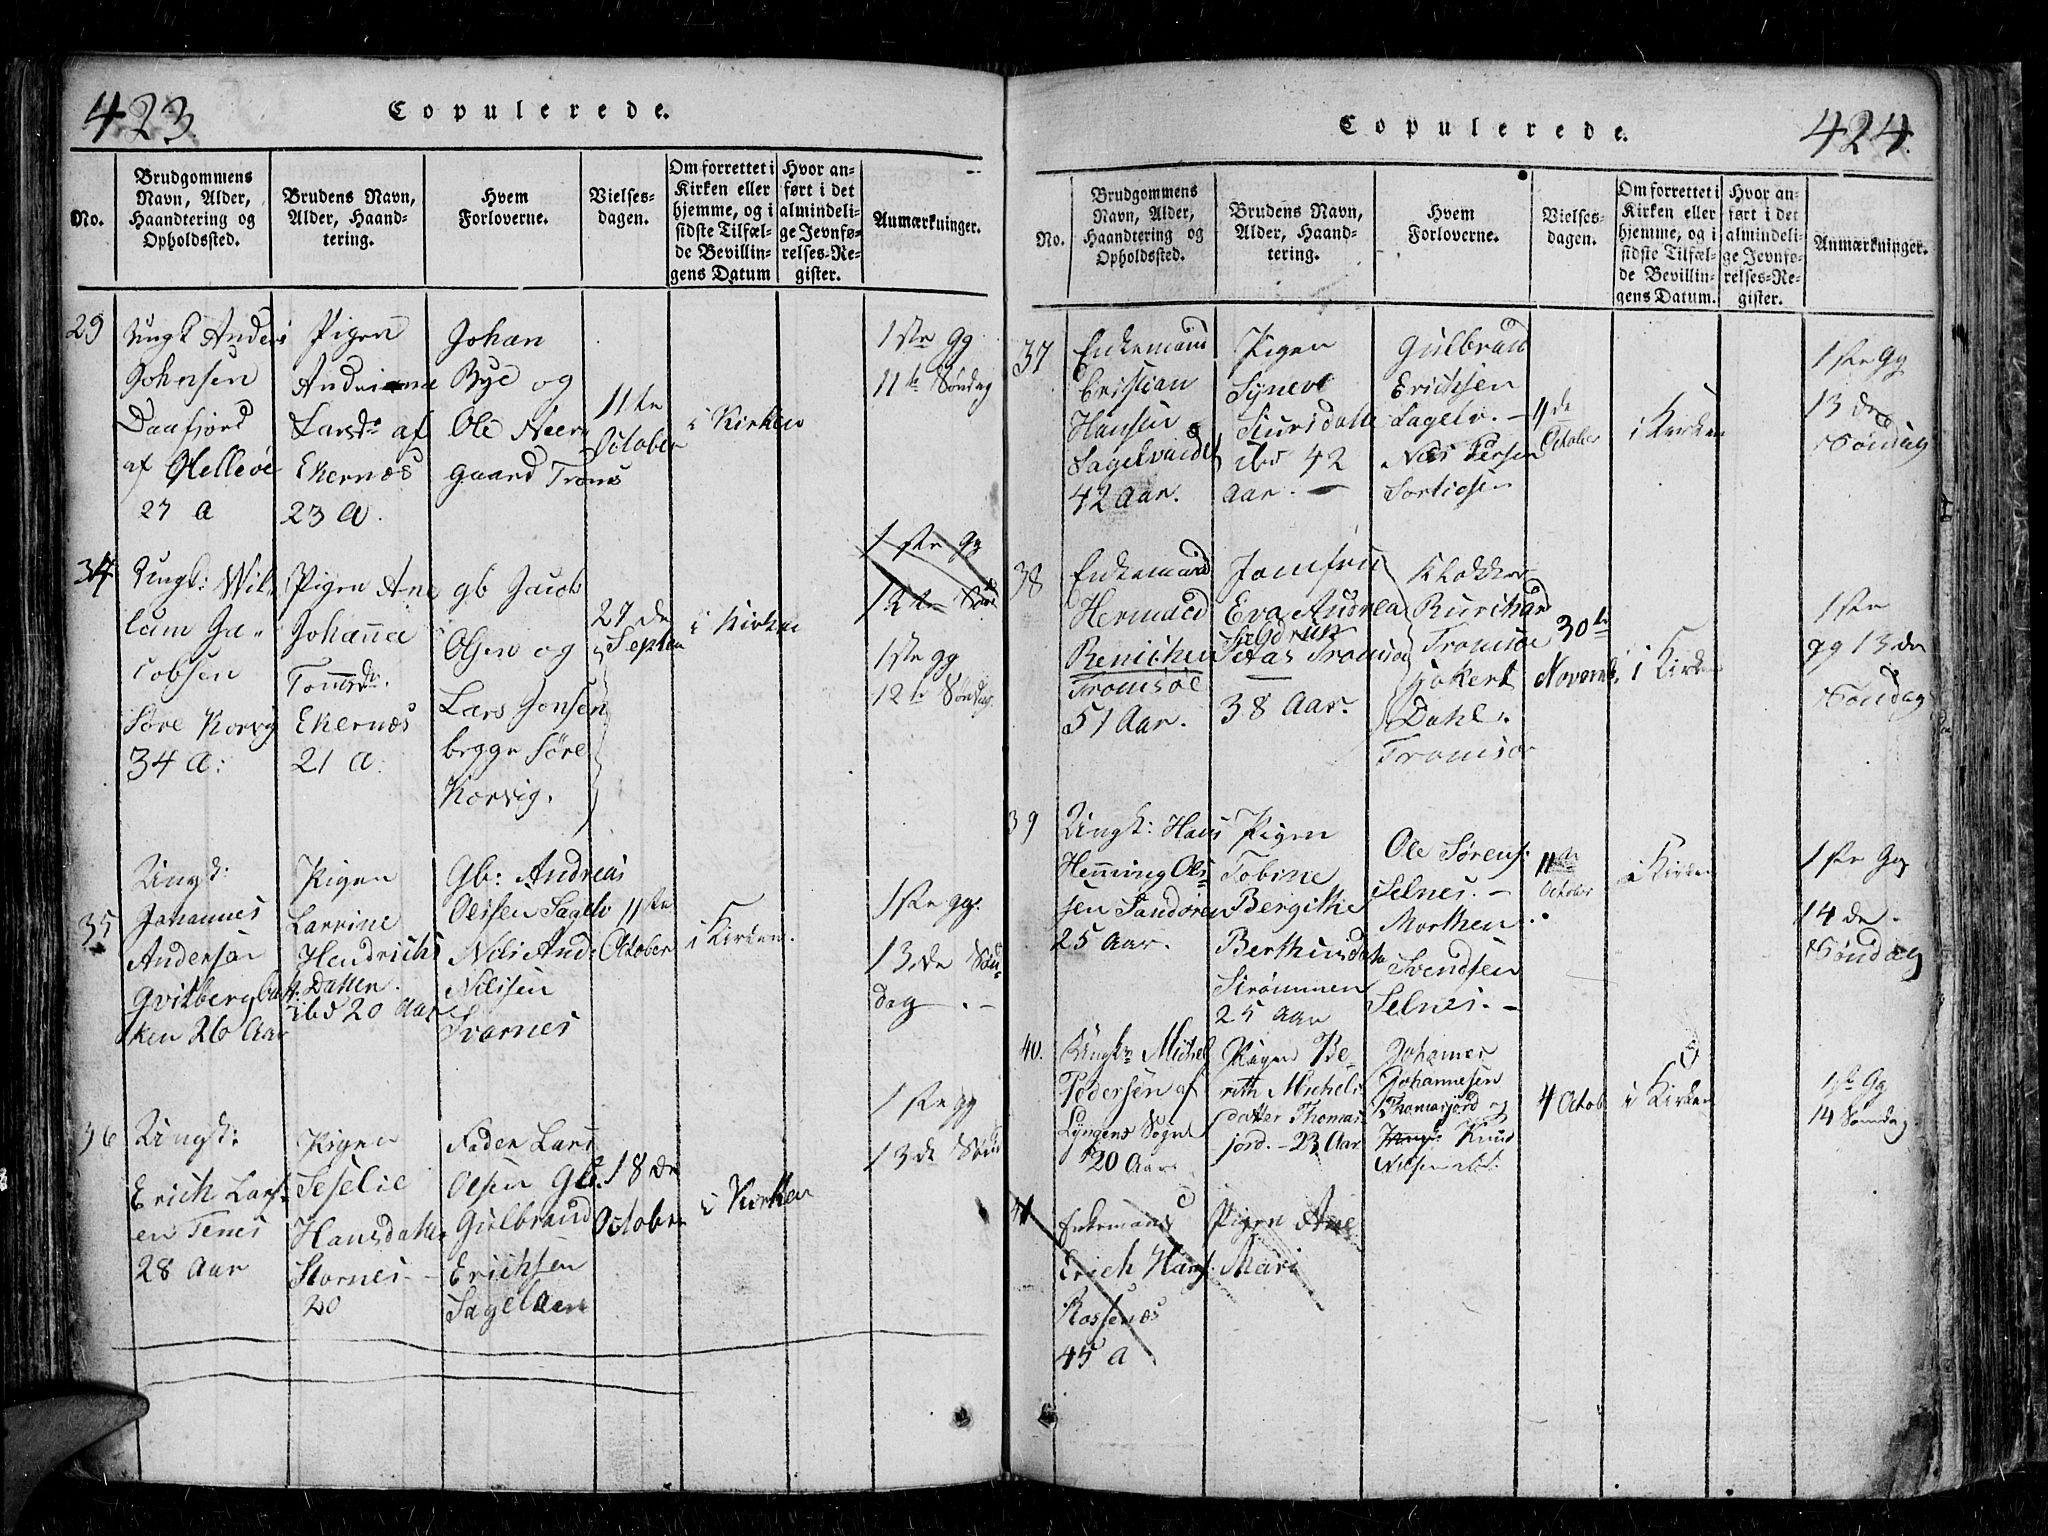 423.
Copulerede.
No.
Brudgommens
Navn, Alder,
Haandtering og
Opholdssted.
Brudens Navn,
Alder, Haand-
tering.
Hvem
Forloverne.
Vielses-
dagen.
Om forrettet i
Kirken eller
hjemme, og i
sidste Tilfæl-
de Bevillin-
gens Datum
Hvor an-
ført i det
almindeli-
ge Jevnfø-
relses-Re-
gister.
Anmærkninger.
29
Ungk Anders
Johnsen
Daafjord
af Helleöe
27 A
Pigen
Andrianne
Larsdr. af
Ekernæs
23 A.
Johan
Bye og
Ole Neer
gaard Troms
11te
October
i Kirken
1ste Gg
11te Søndag
34
Ungk: Wil-
lum Ja-
cobsen
Søre Korvig
34 A:
Pigen Ane
Johanna
Tomsdr.
Ekernæs
21 A.
gb Jacob
Olsen og
Lars Jonsen
begge Søre
Korvig.
27 de
Septem
i Kirken
1ste Gg
12te Sønd
1ste gg
12te Søndag
35
Ungk:
Johannes
Andersen
Gvitbergbak
ken 26 Aar
Pigen
Larrine
Hendrichs
Datter.
ibd 20 Aar
Gb: Andreas
Olssen Sagelv
Nils And:
Nilssen
Svarnes
11te
October
i Kirken.
1ste gg.
13de Søn-
dag. -
36
Ungk:
Erich Lars-
en Tenes
28 Aar
Pigen
Seselie
Hansdatter
Stornes -
20
Fader Lars
Olsen Gb.
Gulbrand
Erichsen
Sagelven
18 de
October
i Kirken
1ste gg
13de Sønd
424.
Copulerede.
No.
Brudgommens
Navn, Alder,
Haandtering og
Opholdssted.
Brudens Navn,
Alder, Haand-
tering.
Hvem
Forloverne.
Vielses-
dagen.
Om forrettet i
Kirken eller
hjemme, og i
sidste Tilfæl-
de Bevillin-
gens Datum.
Hvor an-
ført i det
almindeli-
ge Jevnfø-
relses-Re-
gister.
Anmærkninger.
37
Enkemand
Cristian
Hansen
Sagelvaidet
42 Aar.
Pigen
Synevo
Siursdatter
ibd 42
Aar. -
Gulbrand
Erichsen
Sagelv. -
Nils Persen
Sortiosen
11 de
October
i Kirken
1ste Gg
13 de
Søndag
38
Enkemand
Hermand
Renichen
Tromsöe
51 Aar.
Jomfru
Eva Andrea
Figenschou
Tromsöe
38 Aar.
Klokker
Burchard
Tromsöe
Jokert
Dahl.
Tromsöe
30te
Novemb.
i Kirken
1ste
gg 13 de
Søndag
39
Ungk: Hans
Henning Ols-
sen Sandören
25 Aar.
Pigen
Tobine
Bergithe
Berthusdatr
Strömmen
25 Aar
Ole Sörens:
Selnes. -
Morthen
Svendsen
Selnes. -
11te
October
i Kirken
1ste Gg
14 de.
Søndag
40.
Ungk: Michel
Pedersen af
Lyngens Sogn
20 Aar
Pigen Be-
rith Michels
datter Thomas
jord. - 23 Aar
Johannes
Johannesen
Thomasjord og
Knud
Nilsen ibd:
4 Octob
i Kirken
1ste Gg
14 Sømdag
41
Enkemand
Erich Hans.
Rossenæs
45 A
Pigen Ane
Mari